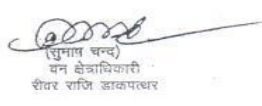 (सुमाष चन्द)
वन क्षेत्राधिकारी
रीवर राजि डाकपत्थर